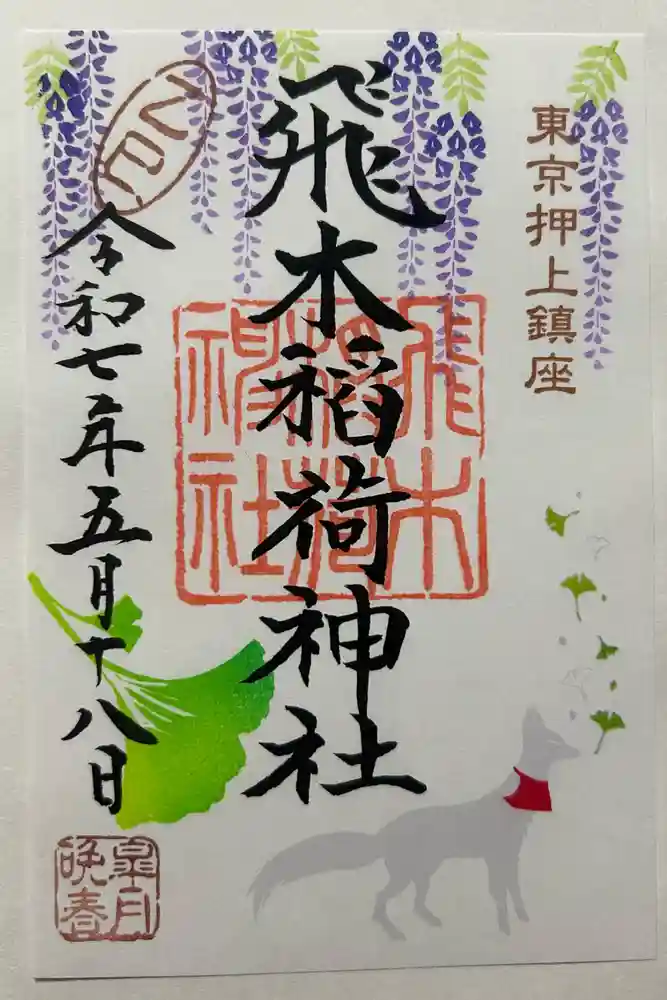 東京押上鎮座
飛木稲荷神社
飛木
稲荷
神社
五月
令和七年五月十八日
皐月
晩春